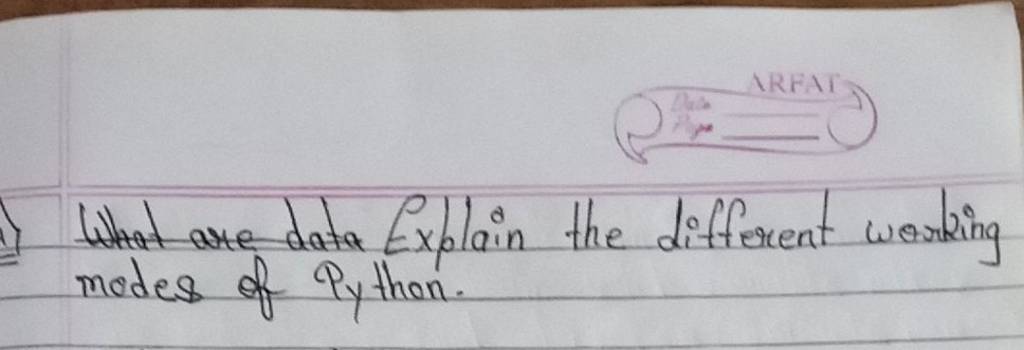 ARFAT
Date
Page
What are data Explain the different working
modes of Python.